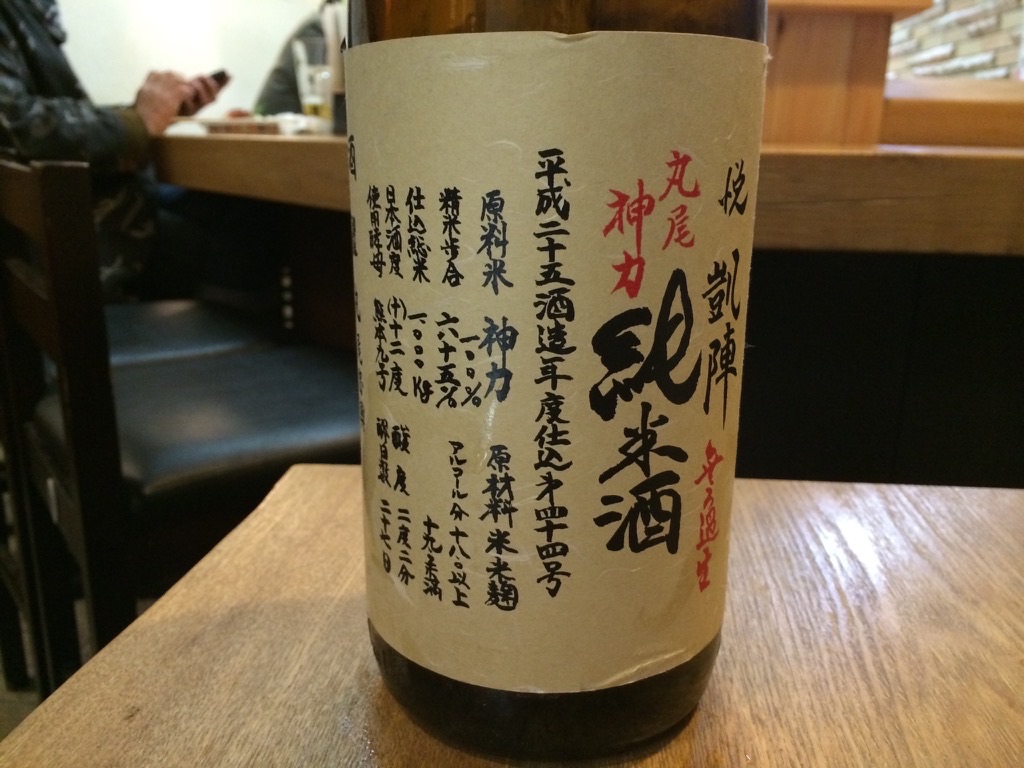 悦 凱陣 無ろ過生
丸尾
神力
純米酒
平成二十五酒造年度仕込第四十四号
原料米 神力 一〇〇% 原材料 米 米麹
精米歩合 六十五% アルコール分 十八〇以上 十九未満
仕込総米 一〇〇〇Kg
日本酒度 (+)十二度 酸度 二度二分
使用酵母 熊本九号 醪日数 二十七日
酒